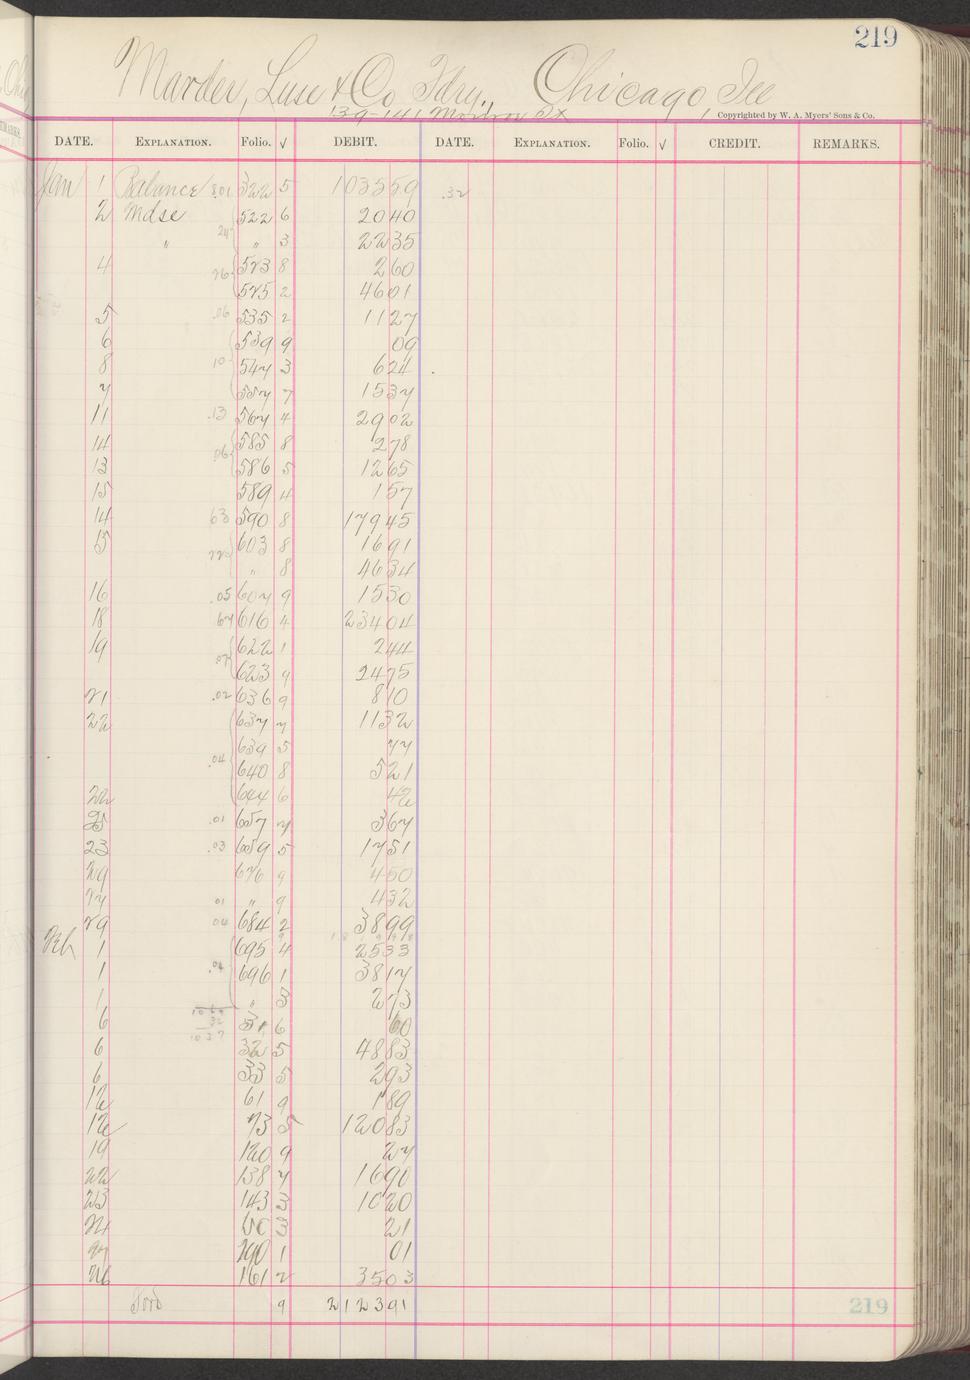 219
Marder, Luse & Co Fdry., Chicago Ill
139-141 Monroe St
Copyrighted by W. A. Myers' Sons & Co.
DATE. EXPLANATION. Folio. √ DEBIT. DATE. EXPLANATION. Folio. √ CREDIT. REMARKS.
Jan 1 Balance 8.01 322 5 103559 .32
2 Mdse 522 6 2040
24 " " 3 2235
4 26 523 8 260
525 2 4601
5 .06 535 2 1127
6 539 9 09
8 10 547 3 624
7 557 7 1537
11 .13 567 4 2902
14 .06 585 8 278
13 586 5 1265
15 589 4 157
14 63 590 8 17945
15 22 603 8 1691
" 8 4634
16 .05 607 9 1530
18 67 616 4 23404
19 .07 622 1 244
623 9 2475
21 .02 636 9 810
22 637 7 1132
639 5 77
.04 640 8 521
22 644 6 42
25 .01 657 7 367
23 .03 659 5 1751
29 676 9 450
27 01 " 9 432
29 04 684 2 3899
Feb 1 695 4 2533
1 .04 696 1 3817
1 " 3 273
6 31 6 60
6 1037 32 5 4883
6 33 5 293
12 61 9 189
12 73 5 12083
19 120 9 27
22 138 7 1690
23 143 3 1020
24 3 21
27 1 01
26 161 2 3503
Ford 9 212391
219